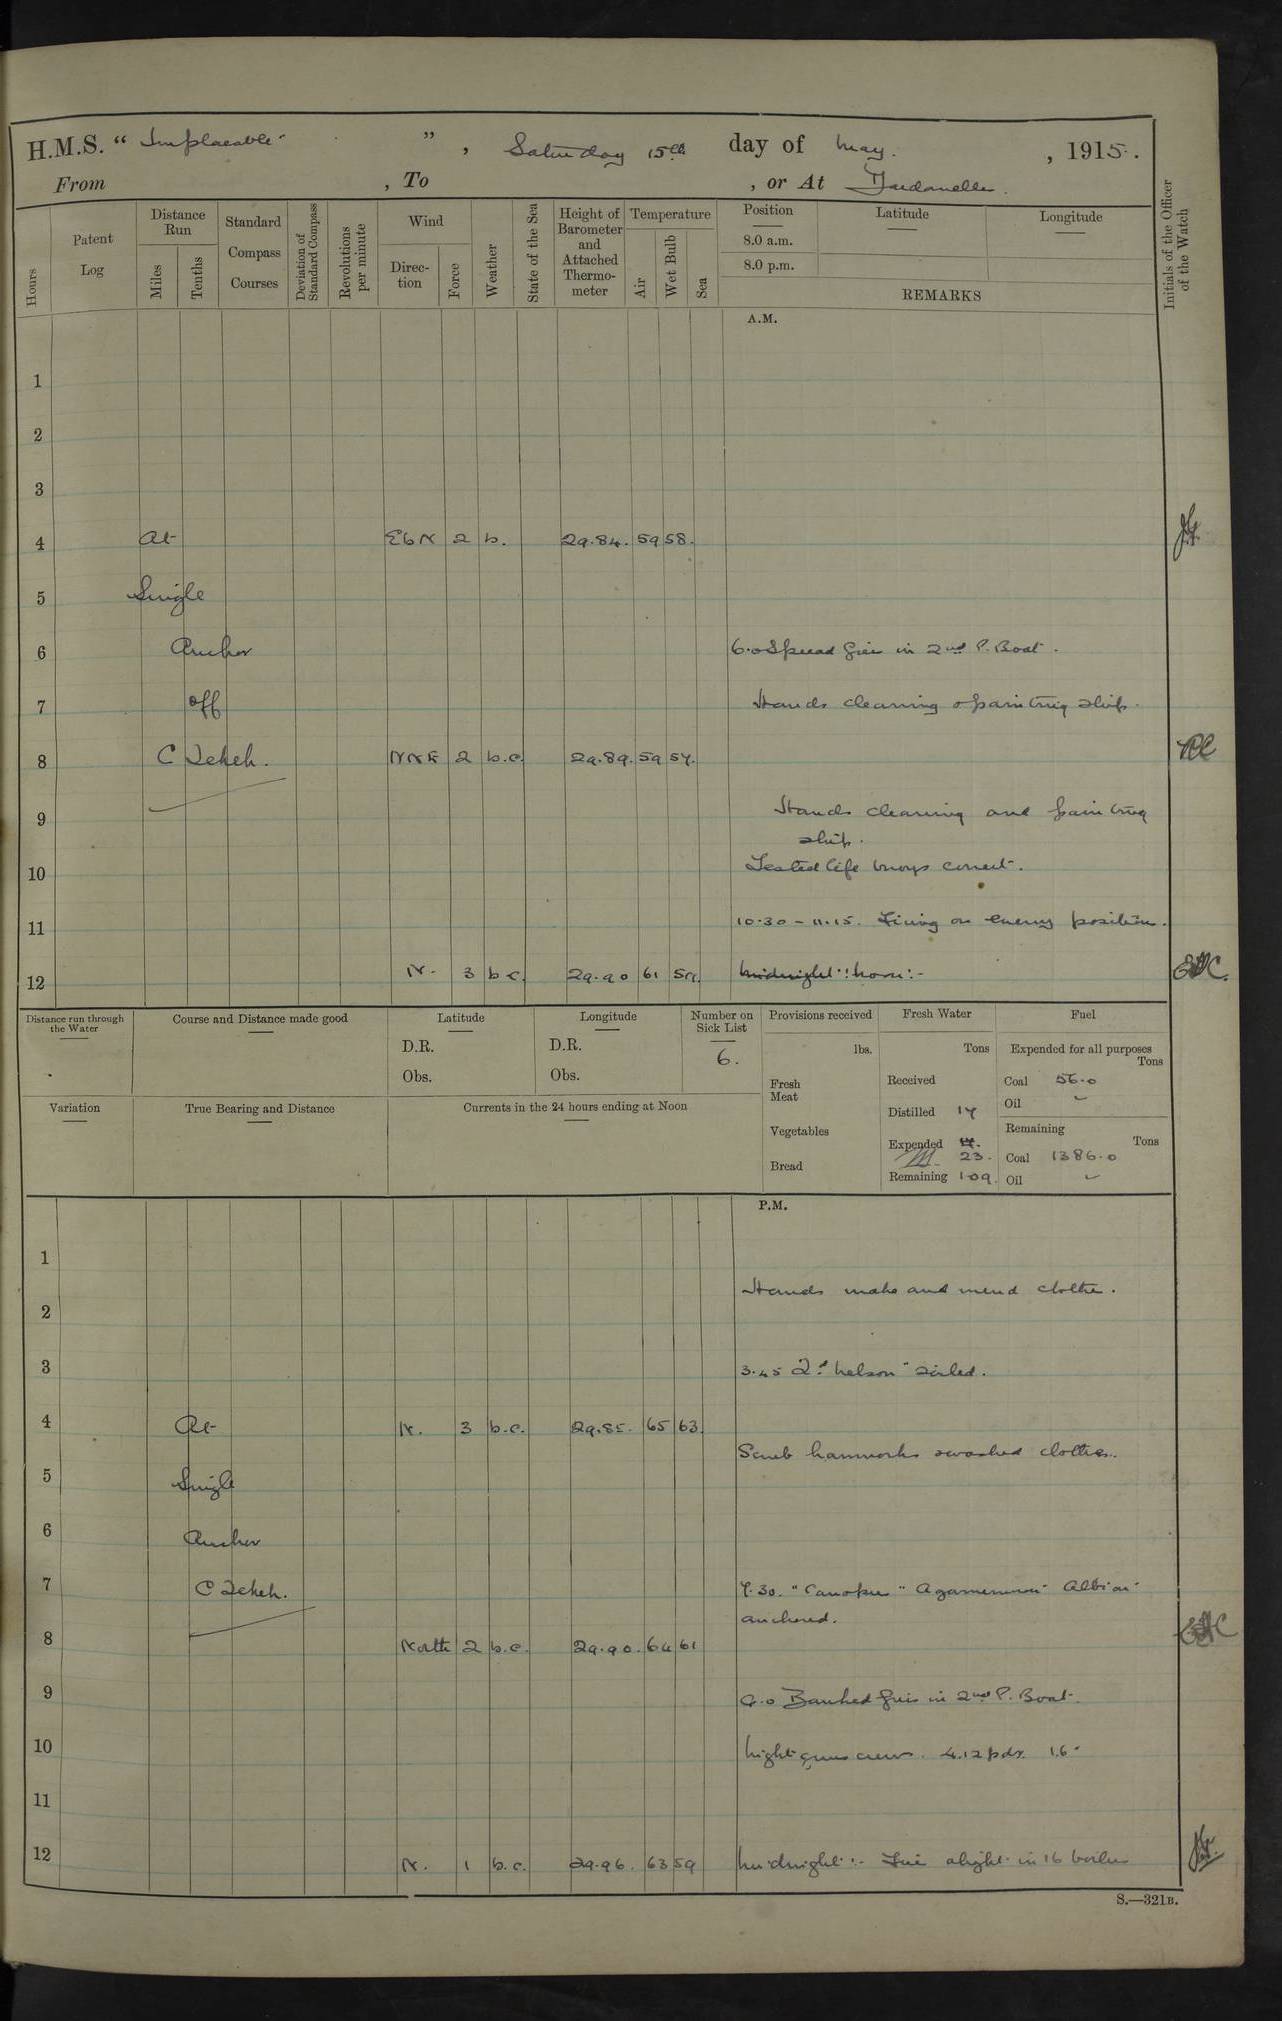 H.M.S. “ Implacable ” , Saturday 15th day of May. , 1915.
From , To , or At Dardanelles.
Hours
Patent Log
Distance Run
Miles
Tenths
Standard Compass Courses
Deviation of Standard Compass
Revolutions per minute
Wind
Direction
Force
Weather
State of the Sea
Height of Barometer and Attached Thermometer
Temperature
Air
Wet Bulb
Sea
Position
8.0 a.m.
8.0 p.m.
Latitude
Longitude
REMARKS
Initials of the Officer of the Watch
A.M.
1
2
3
4 At EbN 2 b. 29.84. 59 58.
5 Single
6 Anchor 6.0 Spread fires in 2nd P. Boat.
7 off Hands cleaning & painting ship.
8 C Tekeh. NNE 2 b.c. 29.89. 59 57.
9 Hands cleaning and painting
ship.
10 Tested life buoys correct.
11 10.30 - 11.15. Firing on enemy position.
12 N. 3 b.c. 29.90 61 59. midnight : noon :-
Distance run through the Water
Course and Distance made good
Latitude
D.R.
Obs.
Longitude
D.R.
Obs.
Number on Sick List
6.
Provisions received
lbs.
Fresh Meat
Vegetables
Bread
Fresh Water
Tons
Received
Distilled 17
Expended 17.
23.
Remaining 109.
Fuel
Expended for all purposes
Tons
Coal 56.0
Oil
Remaining
Tons
Coal 1386.0
Oil
Variation
True Bearing and Distance
Currents in the 24 hours ending at Noon
P.M.
1
Hands make and mend clothes.
2
3 3.45 "Ld Nelson" sailed.
4 At N. 3 b.c. 29.85. 65 63.
Scrub hammocks & washed clothes.
5 Single
6 Anchor
7 C Tekeh. 7.30. "Canopus" "Agamemnon" "Albion"
anchored.
8 North 2 b.c. 29.90. 64 61
9 9.0 Banked fires in 2nd P. Boat.
10 Night guns crews. 4.12 pdr. 1.6"
11
12 N. 1 b.c. 29.96. 63 59 Midnight :- Fires alight in 16 boilers
S.—321B.